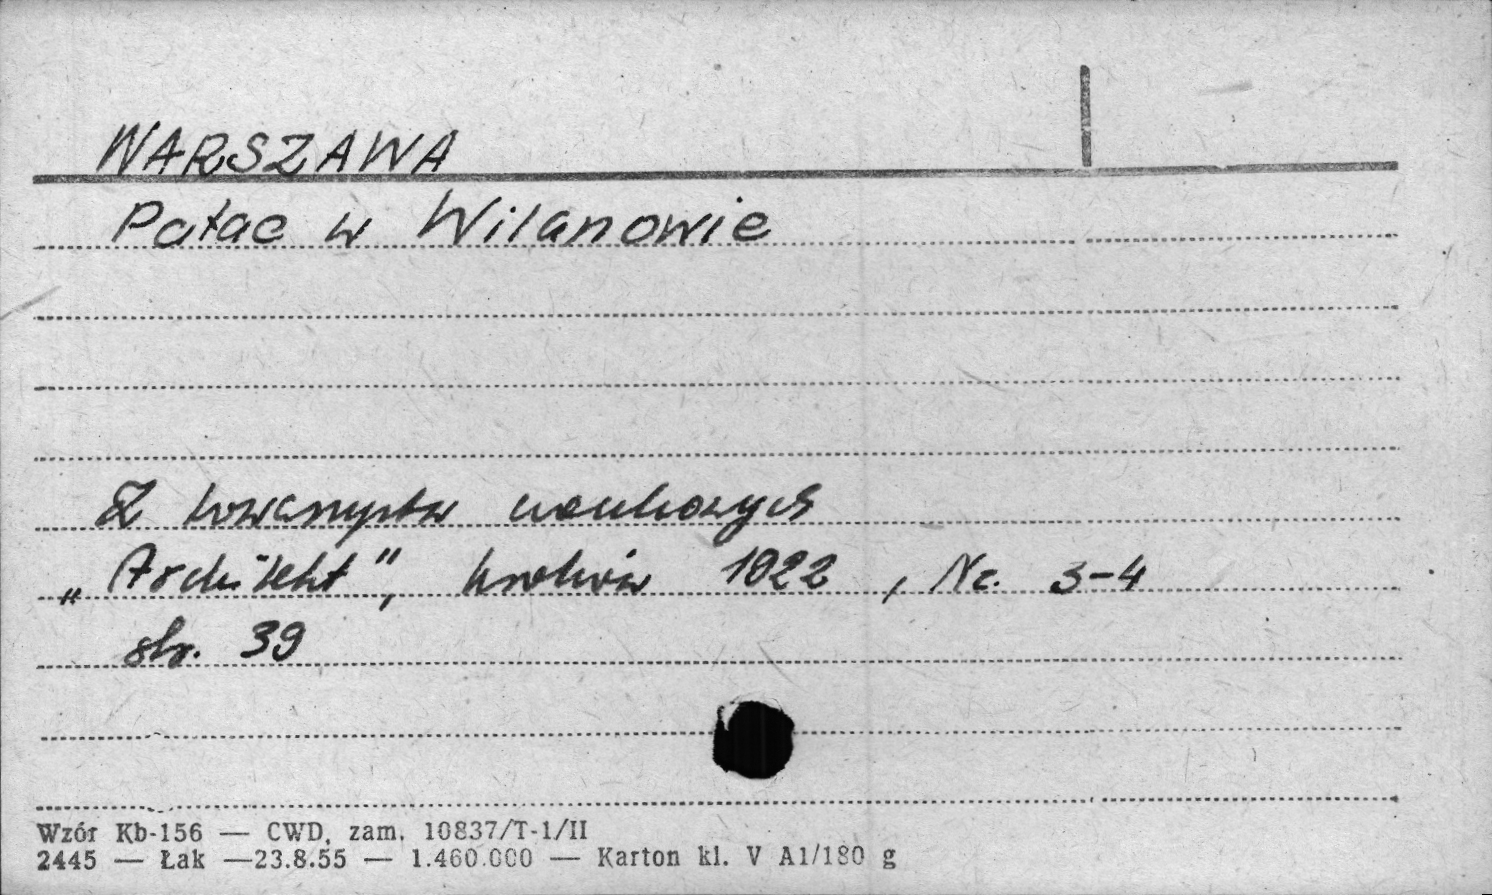 WARSZAWA
Pałac w Wilanowie
Z towarzystw naukowych
„Architekt", Kraków 1922, Nr. 3-4
str. 39
Wzór Kb-156 — CWD, zam. 10837/T-1/II
2445 — Łak —23.8.55 — 1.460.000 — Karton kl. V A1/180 g